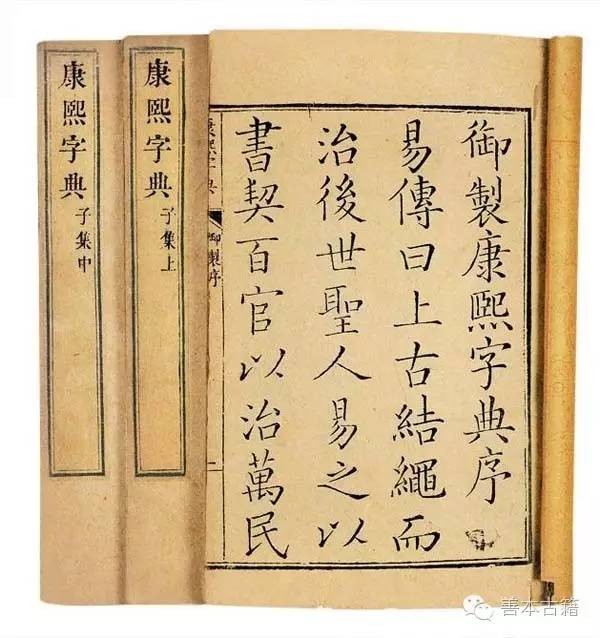 御製康熙字典序
易傳曰上古結繩而
治後世聖人易之以
書契百官以治萬民
康熙字典
御製序
一
康熙字典 子集上
康熙字典 子集中
善本古籍